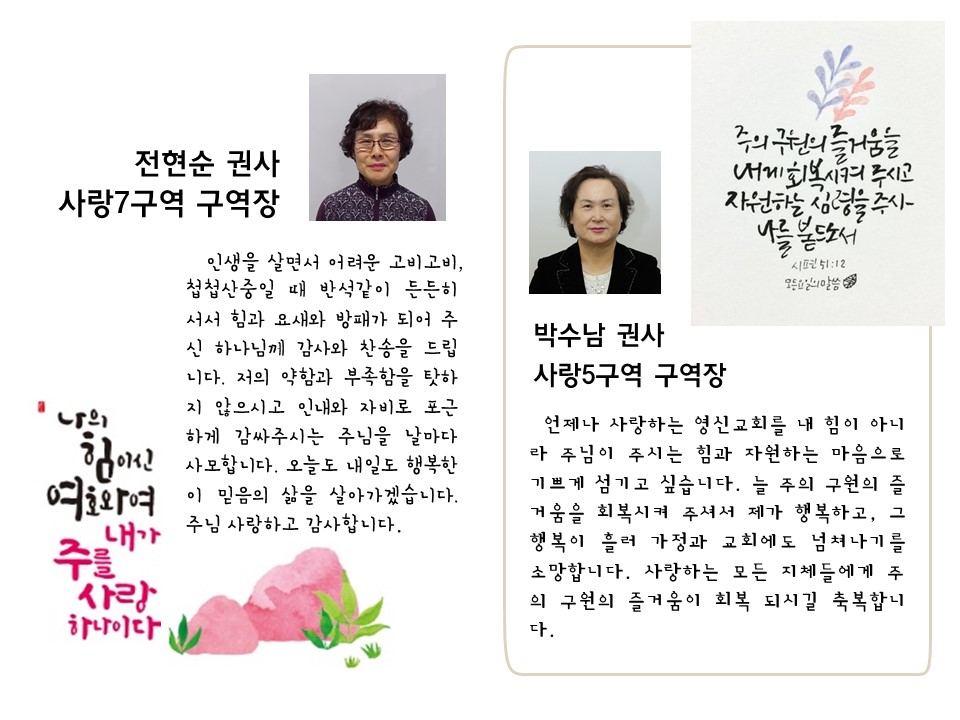 전현순 권사
사랑7구역 구역장
인생을 살면서 어려운 고비고비,
첩첩산중일 때 반석같이 든든히
서서 힘과 요새와 방패가 되어 주
신 하나님께 감사와 찬송을 드립
니다. 저의 약함과 부족함을 탓하
지 않으시고 인내와 자비로 포근
하게 감싸주시는 주님을 날마다
사모합니다. 오늘도 내일도 행복한
이 믿음의 삶을 살아가겠습니다.
주님 사랑하고 감사합니다.
나의
힘이신
여호와여
내가
주를
사랑
하나이다
주의 구원의 즐거움을
내게 회복시켜 주시고
자원하는 심령을 주사
나를 붙드소서
시편 51:12
모든요일의말씀
박수남 권사
사랑5구역 구역장
언제나 사랑하는 영신교회를 내 힘이 아니
라 주님이 주시는 힘과 자원하는 마음으로
기쁘게 섬기고 싶습니다. 늘 주의 구원의 즐
거움을 회복시켜 주셔서 제가 행복하고, 그
행복이 흘러 가정과 교회에도 넘쳐나기를
소망합니다. 사랑하는 모든 지체들에게 주
의 구원의 즐거움이 회복 되시길 축복합니
다.